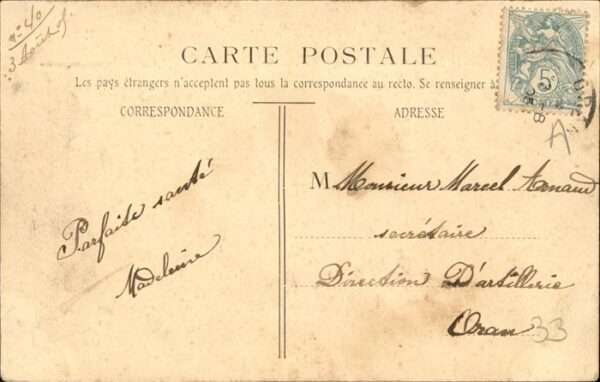 3 Août
CARTE POSTALE
Les pays étrangers n'acceptent pas tous la correspondance au recto. Se renseigner à
CORRESPONDANCE
ADRESSE
5
A
Parfaite santé
Madeleine
M Monsieur Marcel Arnaud
secrétaire
Direction D'artillerie
Oran
33